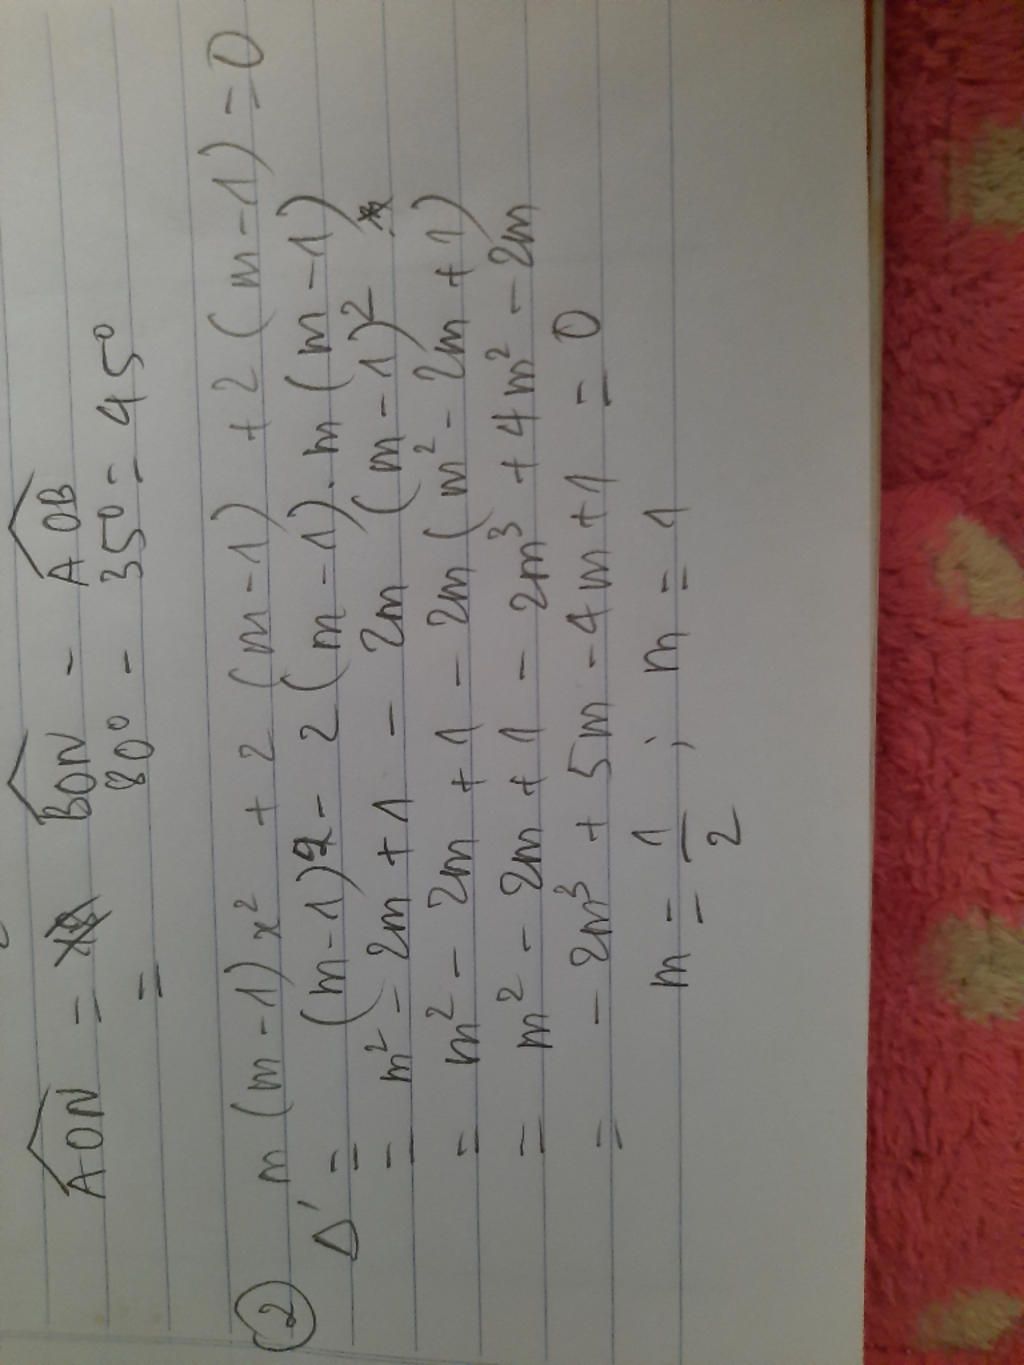 AON = BON - AOB
= 80° - 35° = 45°
② m(m-1)x² + 2(m-1) + 2(m-1) = 0
Δ' = (m-1)² - 2(m-1).m(m-1)
= m² - 2m + 1 - 2m (m-1)²
= m² - 2m + 1 - 2m(m² - 2m + 1)
= m² - 2m + 1 - 2m³ + 4m² - 2m
= - 2m³ + 5m - 4m + 1 = 0
m = 1/2 ; m = 1